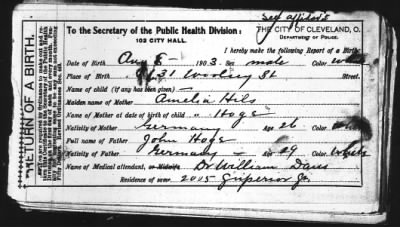 See affidavit
To the Secretary of the Public Health Division:
THE CITY OF CLEVELAND, O.
DEPARTMENT OF POLICE.
103 CITY HALL.
I hereby make the following Report of a Birth
RETURN OF A BIRTH.
Date of Birth Aug 8 - 1903. Sex male Color white
Place of Birth 31 Street.
Name of child (if any has been given) —
Maiden name of Mother Amelia Hils
Name of Mother at date of birth of child " Hoge
Nativity of Mother Germany Age 26 Color white
Full name of Father John Hoge
Nativity of Father Germany Age 29 Color white
Name of Medical attendant, or Midwife Dr William Davis
Residence of same 2005 Superior